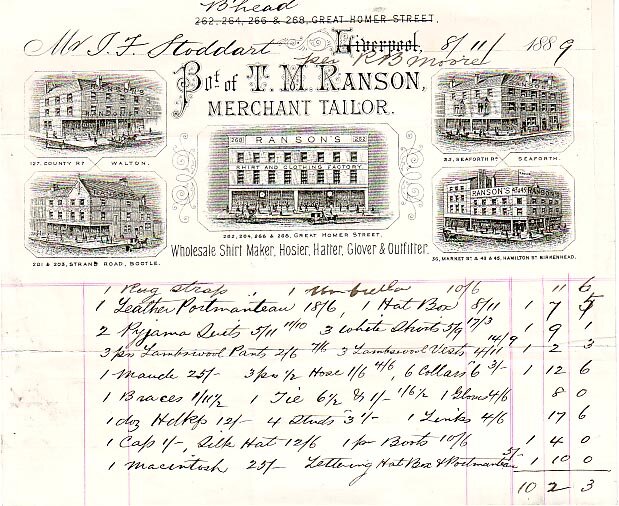 B'head
262, 264, 266 & 268, GREAT HOMER STREET.
Mr J. F Stoddart Liverpool, 8/11/ 1889
per R B Moore
Bot. of T. M. RANSON,
MERCHANT TAILOR.
127. COUNTY RD WALTON.
260 RANSON'S 262
SHIRT AND CLOTHING FACTORY
262, 264, 266 & 268, GREAT HOMER STREET.
SEAFORTH RD SEAFORTH.
RANSON'S RANSON
201 & 203, STRAND ROAD, BOOTLE.
Wholesale Shirt Maker, Hosier, Hatter, Glover & Outfitter.
36, MARKET ST & 43 & 45, HAMILTON ST BIRKENHEAD.
1 Rug Strap " 1 Umbrella 10/6 11 6
1 Leather Portmanteau 18/6, 1 Hat Box 8/11 1 7 5
2 Pyjama Suits 5/11 11/10 3 White Shirts 5/9 17/3 1 9 1
3 prs Lambswool Pants 2/6 7/6 3 Lambswool Vests 4/11 14/9 1 2 3
1 Maude 25/- 3 prs 1/2 Hose 1/6 4/6, 6 Collars 6 3/- 1 12 6
1 Braces 1/11 1/2 1 Tie 6 1/2 & 1/- 1/6 1/2 1 Gloves 4/6 8 0
1 doz Hdkfs 12/- 4 Studs 3/- 1 Links 4/6 17 6
1 Cap 1/-, Silk Hat 12/6 1 pr Boots 10/6 1 4 0
1 Macintosh 25/- Lettering Hat Box & Portmanteau 5/- 1 10 0
10 2 3